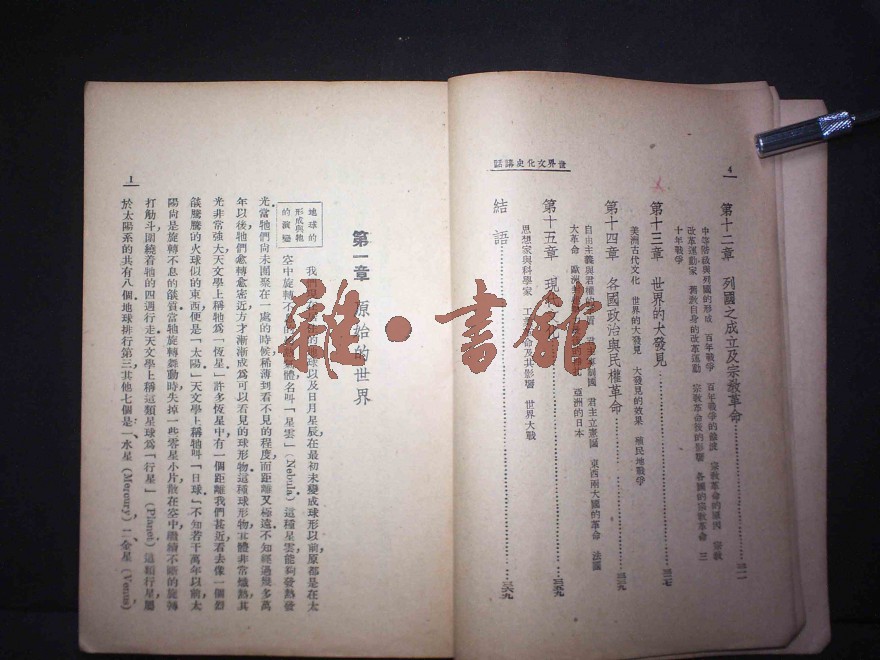 4
世界文化史講話
第十二章 列國之成立及宗教革命
中等階級與列國的形成 百年戰爭 百年戰爭的 宗教革命的 宗教
改革運動家 舊教自身的改革運動 宗教革命後的影響 各國的宗教革命 三
十年戰爭
第十三章 世界的大發見
美洲古代文化 世界的大發見 大發見的效果 殖民地戰爭
第十四章 各國政治與民權革命
自由主義與君權的 君主 制國 君主立憲國 東西兩大國的革命 法國
大革命 歐洲 亞洲的日本
第十五章 現代
思想家與科學家 工 命及其影響 世界大戰
結語
三六九
1
第一章 原始的世界
地球的
形成與牠
的演變
我們 的地球以及日月星辰在最初未變成球形以前原都是在太
空中旋轉不 體名叫「星雲」(Nebula)這種星雲能夠發熱發
光當牠們尚未團聚在一處的時候稀薄到看不見的程度而距離又極遠不知經過幾多萬
年以後牠們愈轉愈密近方才漸漸成爲可以看見的球形物這種球形物立體非常熾熱其
光非常强大天文學上稱牠爲「恆星」許多恆星中有一個距離我們甚近看去像一個烈
燄騰騰的火球似的東西便是「太陽」天文學上稱牠叫「日球」不知若干萬年以前太
陽尚是旋轉不息的燄質當牠旋轉舞動時失掉一些零星小片散在空中繼續不斷的旋轉
打觔斗圍繞着牠的四週行走天文學上稱這類星球爲「行星」(Planet)這類行星屬
於太陽系的共有八個地球排行第三其他七個是一水星(Mercury)二金星(Venus)
雜·書館